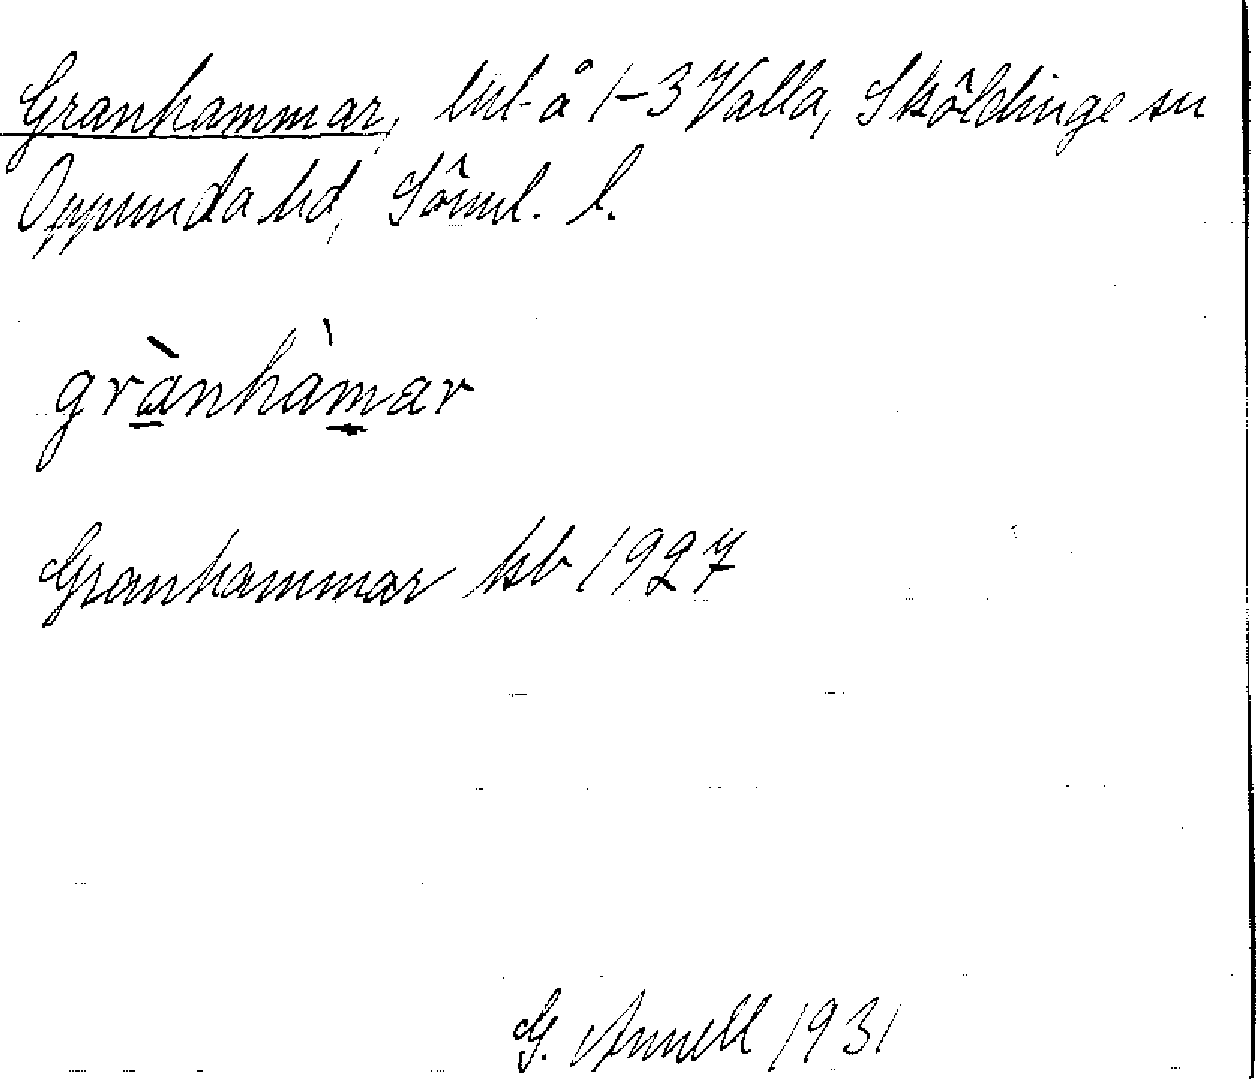 Granhammar, lht å 1-3 Valla, Sköldinge sn
Oppunda hd, Söml. l.
grànhàmar
Granhammar kb 1927
G. Annell 1931